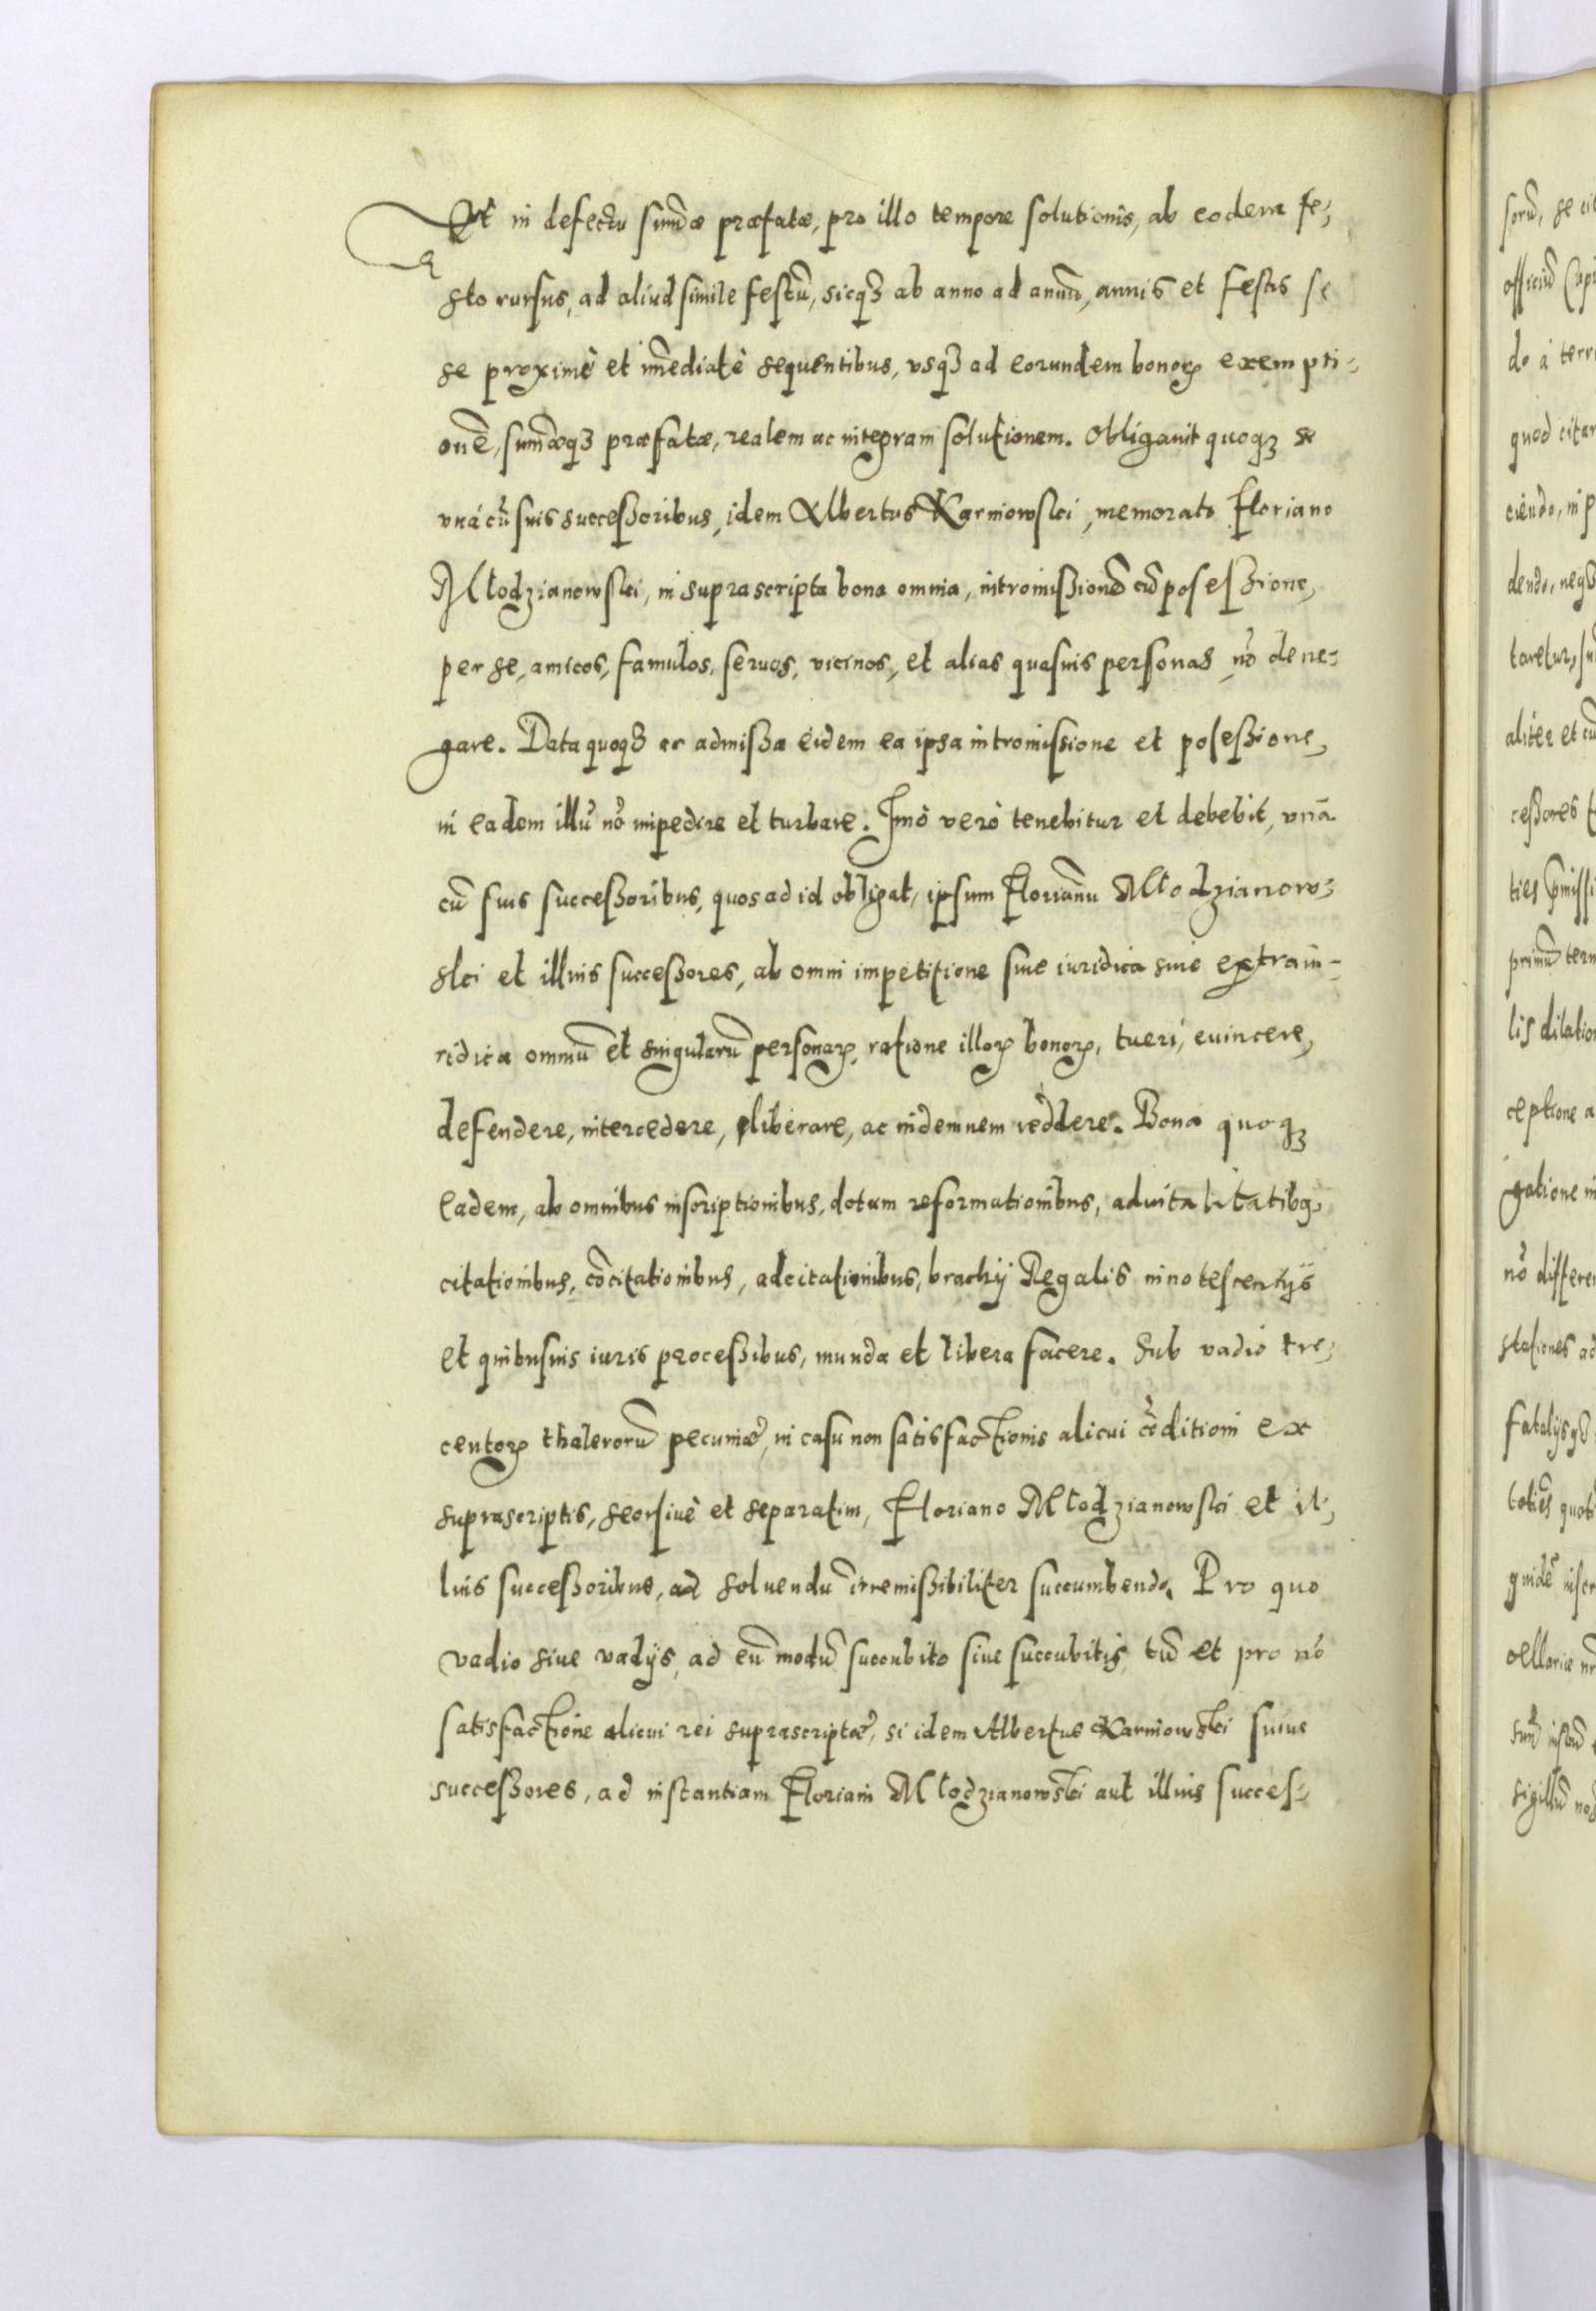 Et in defectu sum̃æ præfatæ, pro illo tempore solutionis, ab eodem fe-
sto rursus, ad aliud simile festũ, sicq₃ ab anno ad annũ, annis et festis se
se proximè et im̃ediatè sequentibus, vsq₃ ad eorundem bonoꝝ exempti-
onẽ, sum̃æq₃ præfatæ, realem ac integram solutionem. Obligauit quoq₃ se
vnà cũ suis successoribus, idem Albertus Karniowski, memorato Floriano
Młodzianowski, in suprascripta bona omnia, intromissionẽ cũ possessione,
per se, amicos, famulos, seruos, vicinos, et alias quasuis personas, nõ dene-
gare. Data quoq₃ ac admissa eidem ea ipsa intromissione et possessione,
in eadem illũ nõ impedire et turbare. Imò verò tenebitur et debebit, vnà
cũ suis successoribus, quos ad id obligat, ipsum Florianũ Młodzianow-
ski et illius successores, ab omni impetitione siue iuridica siue extraiu-
ridica omniũ et singularũ personaꝝ, ratione illoꝝ bonoꝝ, tueri, euincere,
defendere, intercedere, liberare, ac indemnem reddere. Bona quoq₃
eadem, ab omnibus inscriptionibus, dotum reformationibus, aduitalitatibꝯ,
citationibus, cõcitationibus, adcitationibus, brachij Regalis innotescentijs
et quibusuis iuris processibus, munda et libera facere. Sub vadio tre-
centoꝝ thalerorũ pecuniæ, in casu non satisfactionis alicui cõditioni ex
suprascriptis, seorsiuè et separatim, Floriano Młodzianowski et il-
lius successoribus, ad soluendũ irremissibiliter succumbendo. Pro quo
vadio siue vadijs, ad eũ modũ succubito siue succubitis, tũ et pro nõ
satisfactione alicui rei suprascriptæ, si idem Albertus Karniowski suiue
successores, ad instantiam Floriani Młodzianowski aut illius succes-